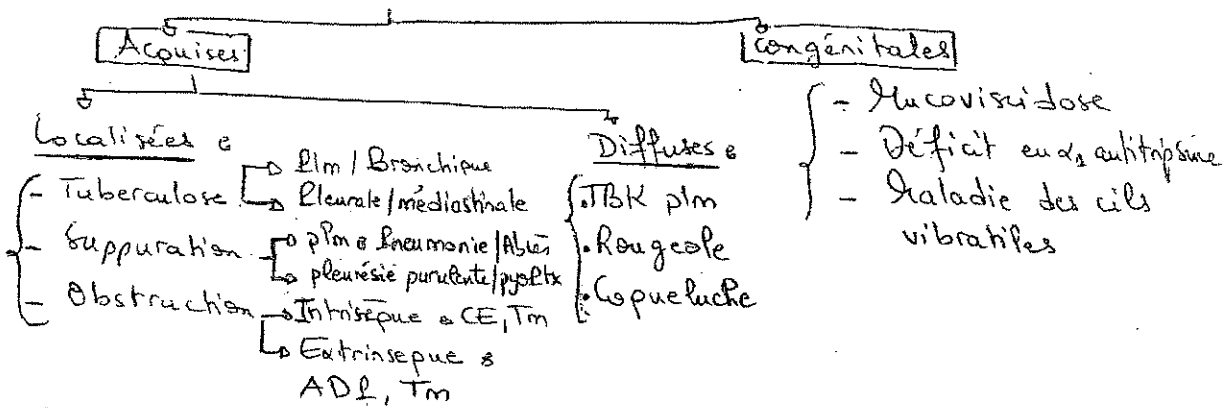 Acquises
Congénitales
Localisées :
- Tuberculose
Plm / Bronchique
Pleurale/médiastinale
- Suppuration
plm : Pneumonie/Abcès
pleurésie purulente/pyoPtx
- Obstruction
Intrisèque : CE, Tm
Extrinseque :
ADP, Tm
Diffuses :
. TBK plm
. Rougeole
. Coqueluche
- Mucoviscidose
- Déficit en α1 antitripsine
- Maladie des cils
vibratiles